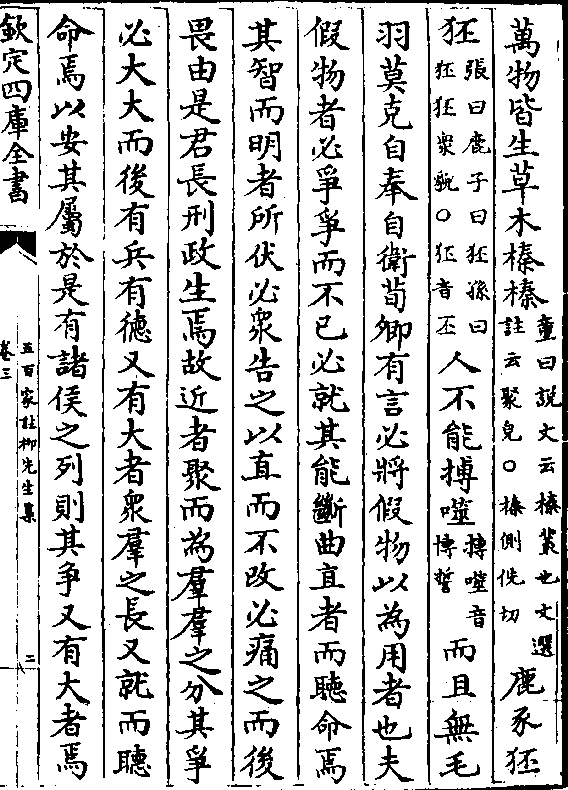 萬物皆生草木榛榛童曰說文云榛叢也文選註云聚皃○榛側侁切鹿豕狉
狉張曰鹿子曰狉孫曰狉狉衆貌○狉音丕人不能搏噬搏噬音博誓而且無毛
羽莫克自奉自衛荀卿有言必將假物以為用者也夫
假物者必爭爭而不已必就其能斷曲直者而聽命焉
其智而明者所伏必衆告之以直而不改必痛之而後
畏由是君長刑政生焉故近者聚而為羣羣之分其爭
必大大而後有兵有徳又有大者衆羣之長又就而聽
命焉以安其屬於是有諸侯之列則其爭又有大者焉
欽定四庫全書
五百家註柳先生集
卷三
三